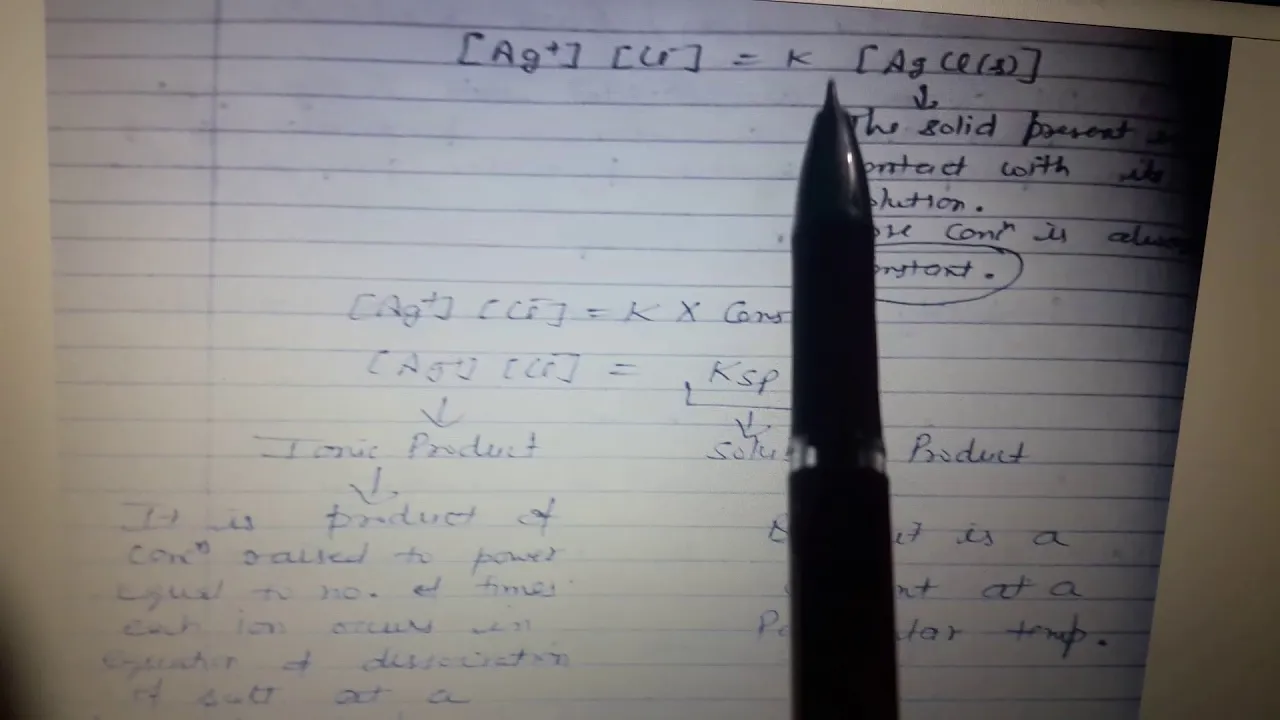 [Ag+] [Cl-] = K [AgCl(s)]
↓
The solid present
contact with its
solution.
conⁿ is
constant.
[Ag+] [Cl-] = K X Cons
[Ag+] [Cl-] = Ksp
↓ ↓
Ionic Product Product
↓
It is product of
conⁿ raised to power
equal to no. of times
each ion occurs in
equation of dissociation
of salt at a
it is a
nt at a
temp.